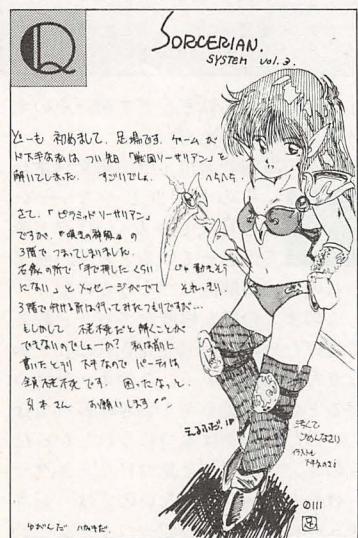 Q
SORCERIAN.
SYSTEM vol.3.
どーも 初めまして、足場です。ゲームが
ド下手な私は つい先日「戦国ソーサリアン」を
解いてしまった。すごいでしょ。へらへら。
さて、「ピラミッドソーサリアン」
ですが、"嘆きの
3階で つまってしまいました。
石像の所で「手で押したくらい じゃ動きそう
にない。」と メッセージがでて それっきり。
3階で行ける所は行ってみたつもりですが…
もしかして 不老不死だと解くことが
できないのでしょーか? 私は前に
書いたとうり 下手なので パーティは
全員不老不死です。困ったなっと。
さん お願いします
えるふだ。
汚くて
ごめんなさい
イラストも
下手だのさ
ゆがんだ ハガキだ。
0111